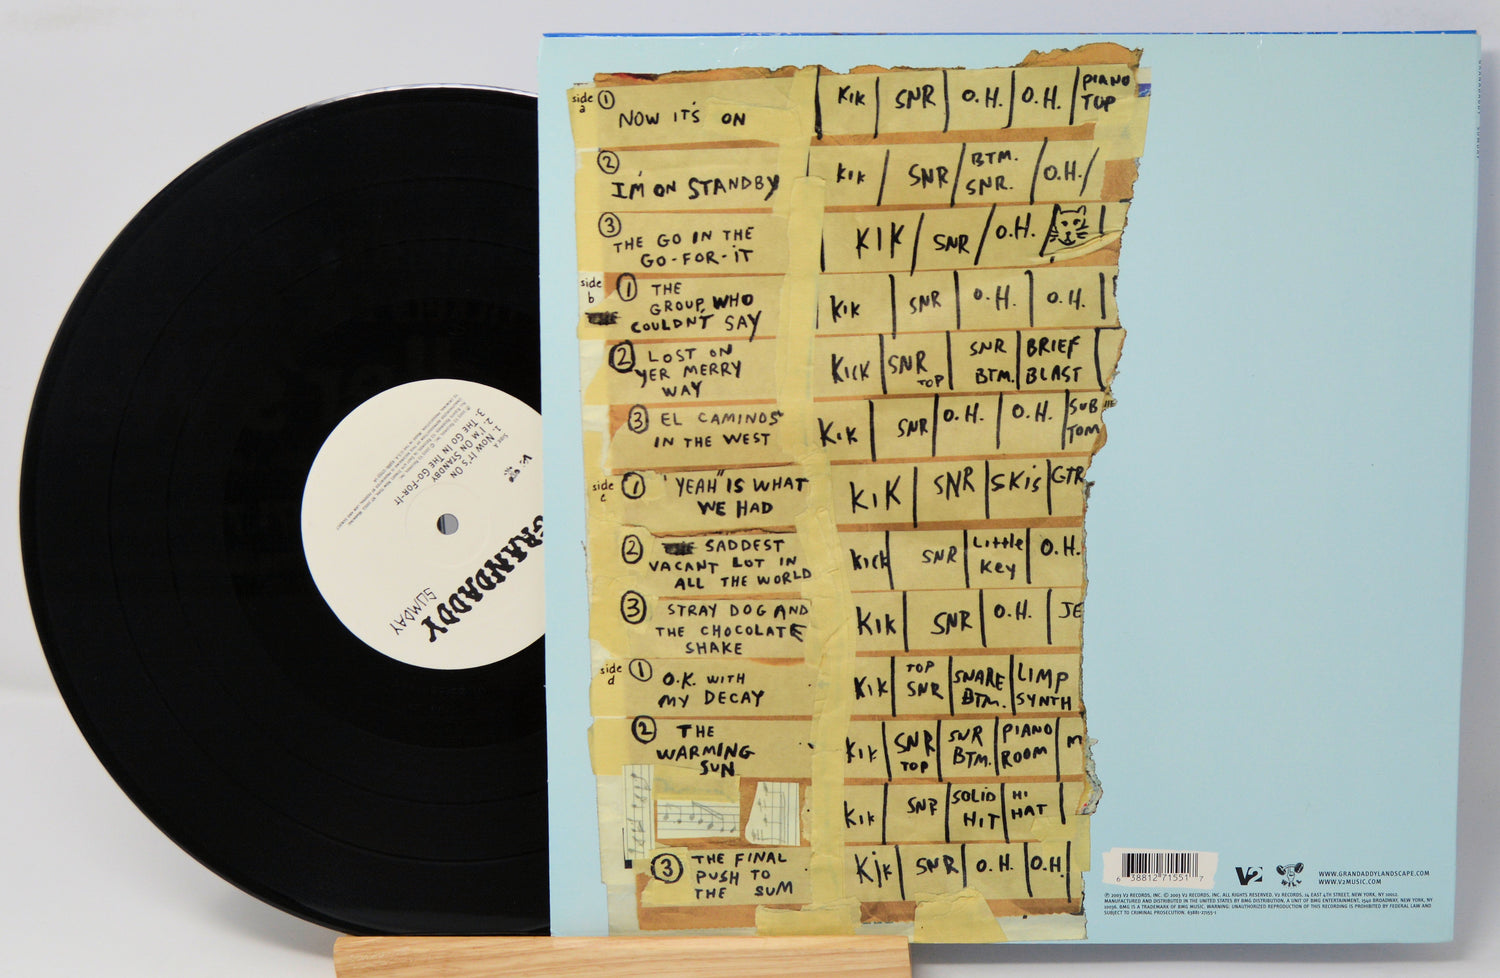 side a ① NOW IT'S ON KIK SNR O.H. O.H. PIANO TOP
② I'M ON STANDBY KIK SNR BTM. SNR. O.H.
③ THE GO IN THE GO-FOR-IT KIK SNR O.H.
side b ① THE GROUP WHO COULDN'T SAY KIK SNR O.H. O.H.
② LOST ON YER MERRY WAY KICK SNR TOP SNR BTM. BRIEF BLAST
③ EL CAMINOS IN THE WEST KIK SNR O.H. O.H. SUB TOM
side c ① "YEAH" IS WHAT WE HAD KIK SNR SKIS GTR
② SADDEST VACANT LOT IN ALL THE WORLD KICK SNR LITTLE KEY O.H.
③ STRAY DOG AND THE CHOCOLATE SHAKE KIK SNR O.H. JE
side d ① O.K. WITH MY DECAY KIK TOP SNR SNARE BTM. LIMP SYNTH
② THE WARMING SUN KIK SNR TOP SNR BTM. PIANO ROOM M
KIK SNR SOLID HIT HI HAT
③ THE FINAL PUSH TO THE SUM KIK SNR O.H. O.H.
6 38812 71551 7
V2
WWW.GRANDADDYLANDSCAPE.COM
WWW.V2MUSIC.COM
℗ 2003 V2 RECORDS, INC. © 2003 V2 RECORDS, INC. ALL RIGHTS RESERVED. V2 RECORDS, 14 EAST 4TH STREET, NEW YORK, NY 10012.
MANUFACTURED AND DISTRIBUTED IN THE UNITED STATES BY BMG DISTRIBUTION, A UNIT OF BMG ENTERTAINMENT, 1540 BROADWAY, NEW YORK, NY
10036. BMG IS A TRADEMARK OF BMG MUSIC. WARNING: UNAUTHORIZED REPRODUCTION OF THIS RECORDING IS PROHIBITED BY FEDERAL LAW AND
SUBJECT TO CRIMINAL PROSECUTION. 63881-27155-1
GRANDADDY
SUMDAY
V2
Side A
1. NOW IT'S ON
2. I'M ON STANDBY
3. THE GO IN THE GO-FOR-IT